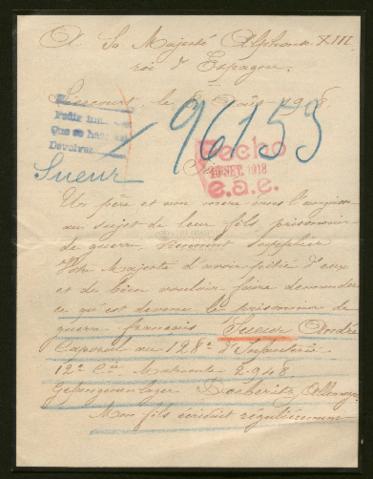 A Sa Majesté Alphonse XIII
roi d'Espagne.
le Août 1918
Que se
Devolver
96153
Fecho
SET. 1918
e.a.e.
Sueur
Un père et une mère dans l'angoisse
au sujet de leur fils prisonnier
de guerre viennent supplier
Votre Majesté d'avoir pitié d'eux
et de bien vouloir faire demander
ce qu'est devenu le prisonnier de
guerre français Sueur André
Caporal au 128e d'Infanterie
12e Cie Matricule 2948
Gefangenenlager Döberitz Allemagne
Mon fils écrivait régulièrement